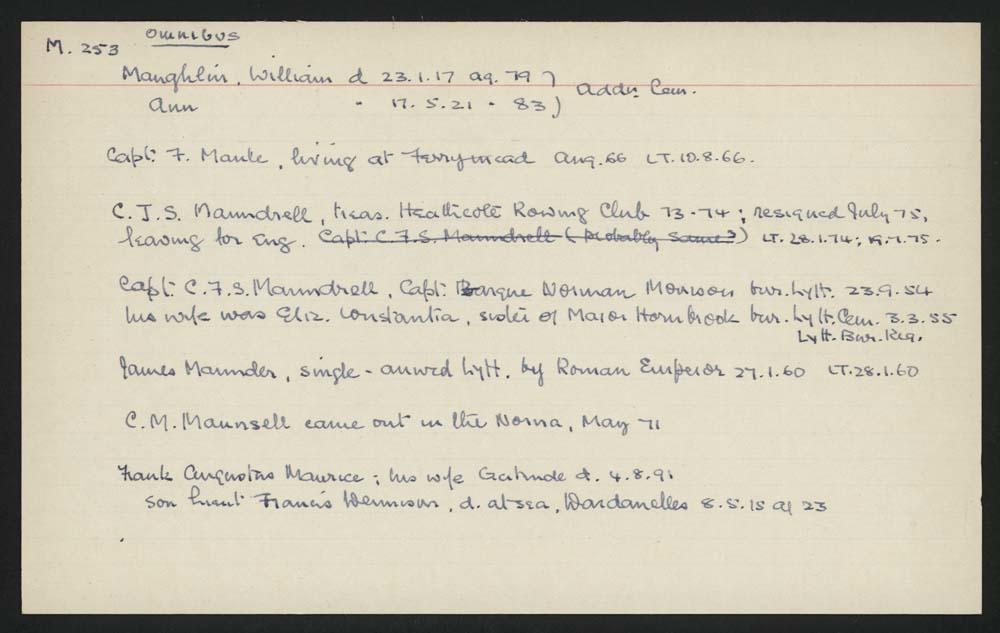 M. 253 Omnibus
Maughlin, William d 23.1.17 ag. 79 ) Addn. Cem.
Ann " 17.5.21 " 83 )
Capt: F. Maule, living at Ferrymead Aug. 66 LT. 10.8.66.
C. J. S. Maundrell, treas. Heathcote Rowing Club 73-74; resigned July 75,
leaving for Eng. Capt: C. F. S. Maundrell (probably same?) LT. 28.1.74; 19.7.75.
Capt: C. F. S. Maundrell, Capt: Barque Norman Morison bur. Lytt. 23.9.54
his wife was Eliz. Constantia, sister of Major Hornbrook bur. Lytt. Cem. 3.3.55
Lytt. Bur. Reg.
James Maunder, single - arrived Lytt. by Roman Emperor 27.1.60 LT. 28.1.60
C. M. Maunsell came out in the Norna, May 71
Frank Augustus Maurice; his wife Gertrude d. 4.8.91
son Lieut Francis Dennison, d. at sea, Dardanelles 8.5.15 ag 23